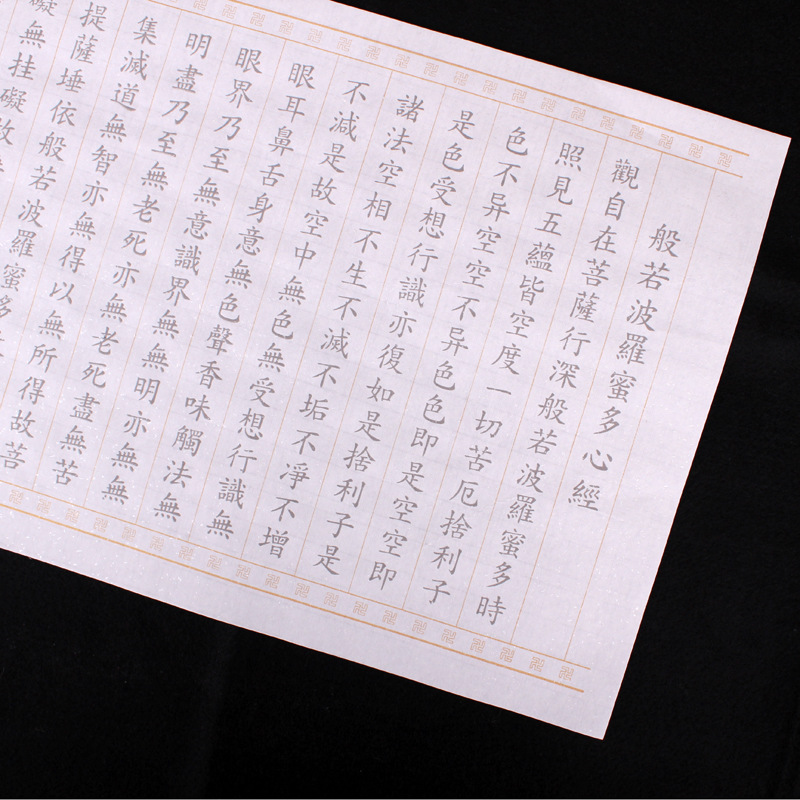 般若波羅蜜多心經
觀自在菩薩行深般若波羅蜜多時
照見五蘊皆空度一切苦厄捨利子
色不异空空不异色色即是空空即
是色受想行識亦復如是捨利子是
諸法空相不生不滅不垢不凈不增
不減是故空中無色無受想行識無
眼耳鼻舌身意無色聲香味觸法無
眼界乃至無意識界無無明亦無無
明盡乃至無老死亦無老死盡無苦
集滅道無智亦無得以無所得故菩
提薩埵依般若波羅蜜多
礙無挂礙故